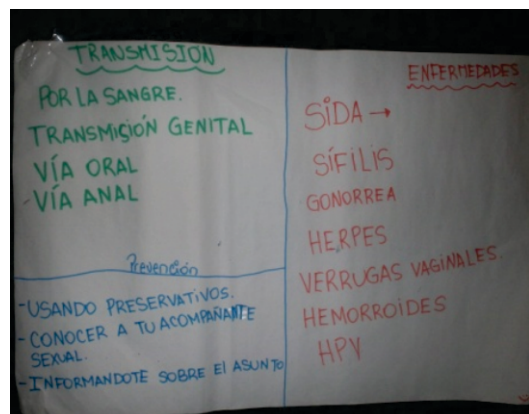 TRANSMISIÓN
POR LA SANGRE.
TRANSMISIÓN GENITAL
VÍA ORAL
VÍA ANAL
Prevención
-USANDO PRESERVATIVOS.
- CONOCER A TU ACOMPAÑANTE
SEXUAL.
-INFORMANDOTE SOBRE El ASUNTO
ENFERMEDADES
SiDA →
SÍFiLiS
GONORREA
HERPES
VERRUGAS VAGiNALES.
HEMORROiDES
HPV